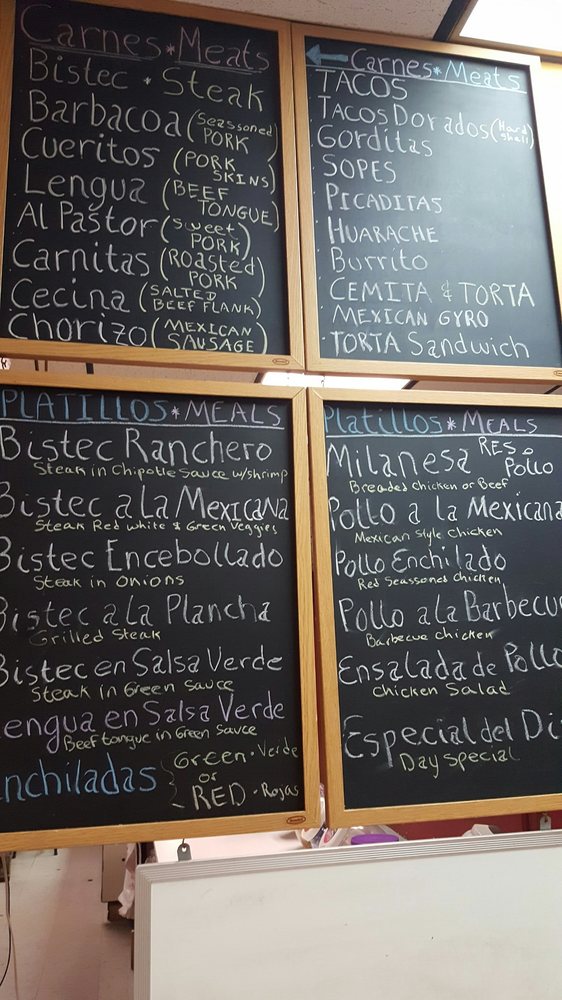 Carnes * Meats
Bistec * Steak
Barbacoa (Seassoned
PORK
Cueritos (PORK
SKINS)
Lengua (BEEF
TONGUE)
Al Pastor (Sweet
PORK)
Carnitas (Roasted
PORK)
Cecina (SALTED
BEEF FLANK)
Chorizo (MEXICAN
SAUSAGE)
Carnes * Meats
TACOS
TACOS Dorados (Hard
Shell)
Gorditas
SOPES
PICADITAS
HUARACHE
Burrito
CEMITA & TORTA
MEXICAN GYRO
TORTA Sandwich
PLATILLOS * MEALS
Bistec Ranchero
Steak in Chipotle Sauce w/shrimp
Bistec a La Mexicana
Steak Red white & Green Veggies
Bistec Encebollado
Steak in Onions
Bistec a la Plancha
Grilled Steak
Bistec en Salsa Verde
Steak in Green Sauce
Lengua en Salsa Verde
Beef tongue in Green Sauce
Enchiladas Green * Verde
or
RED * Rojas
Platillos * MEALS
Milanesa RES o
Pollo
Breaded Chicken or Beef
Pollo a la Mexicana
Mexican Style Chicken
Pollo Enchilado
Red Seassoned Chicken
Pollo a la Barbecu
Barbecue Chicken
Ensalada de Pollo
Chicken Salad
Especial del Di
Day Special